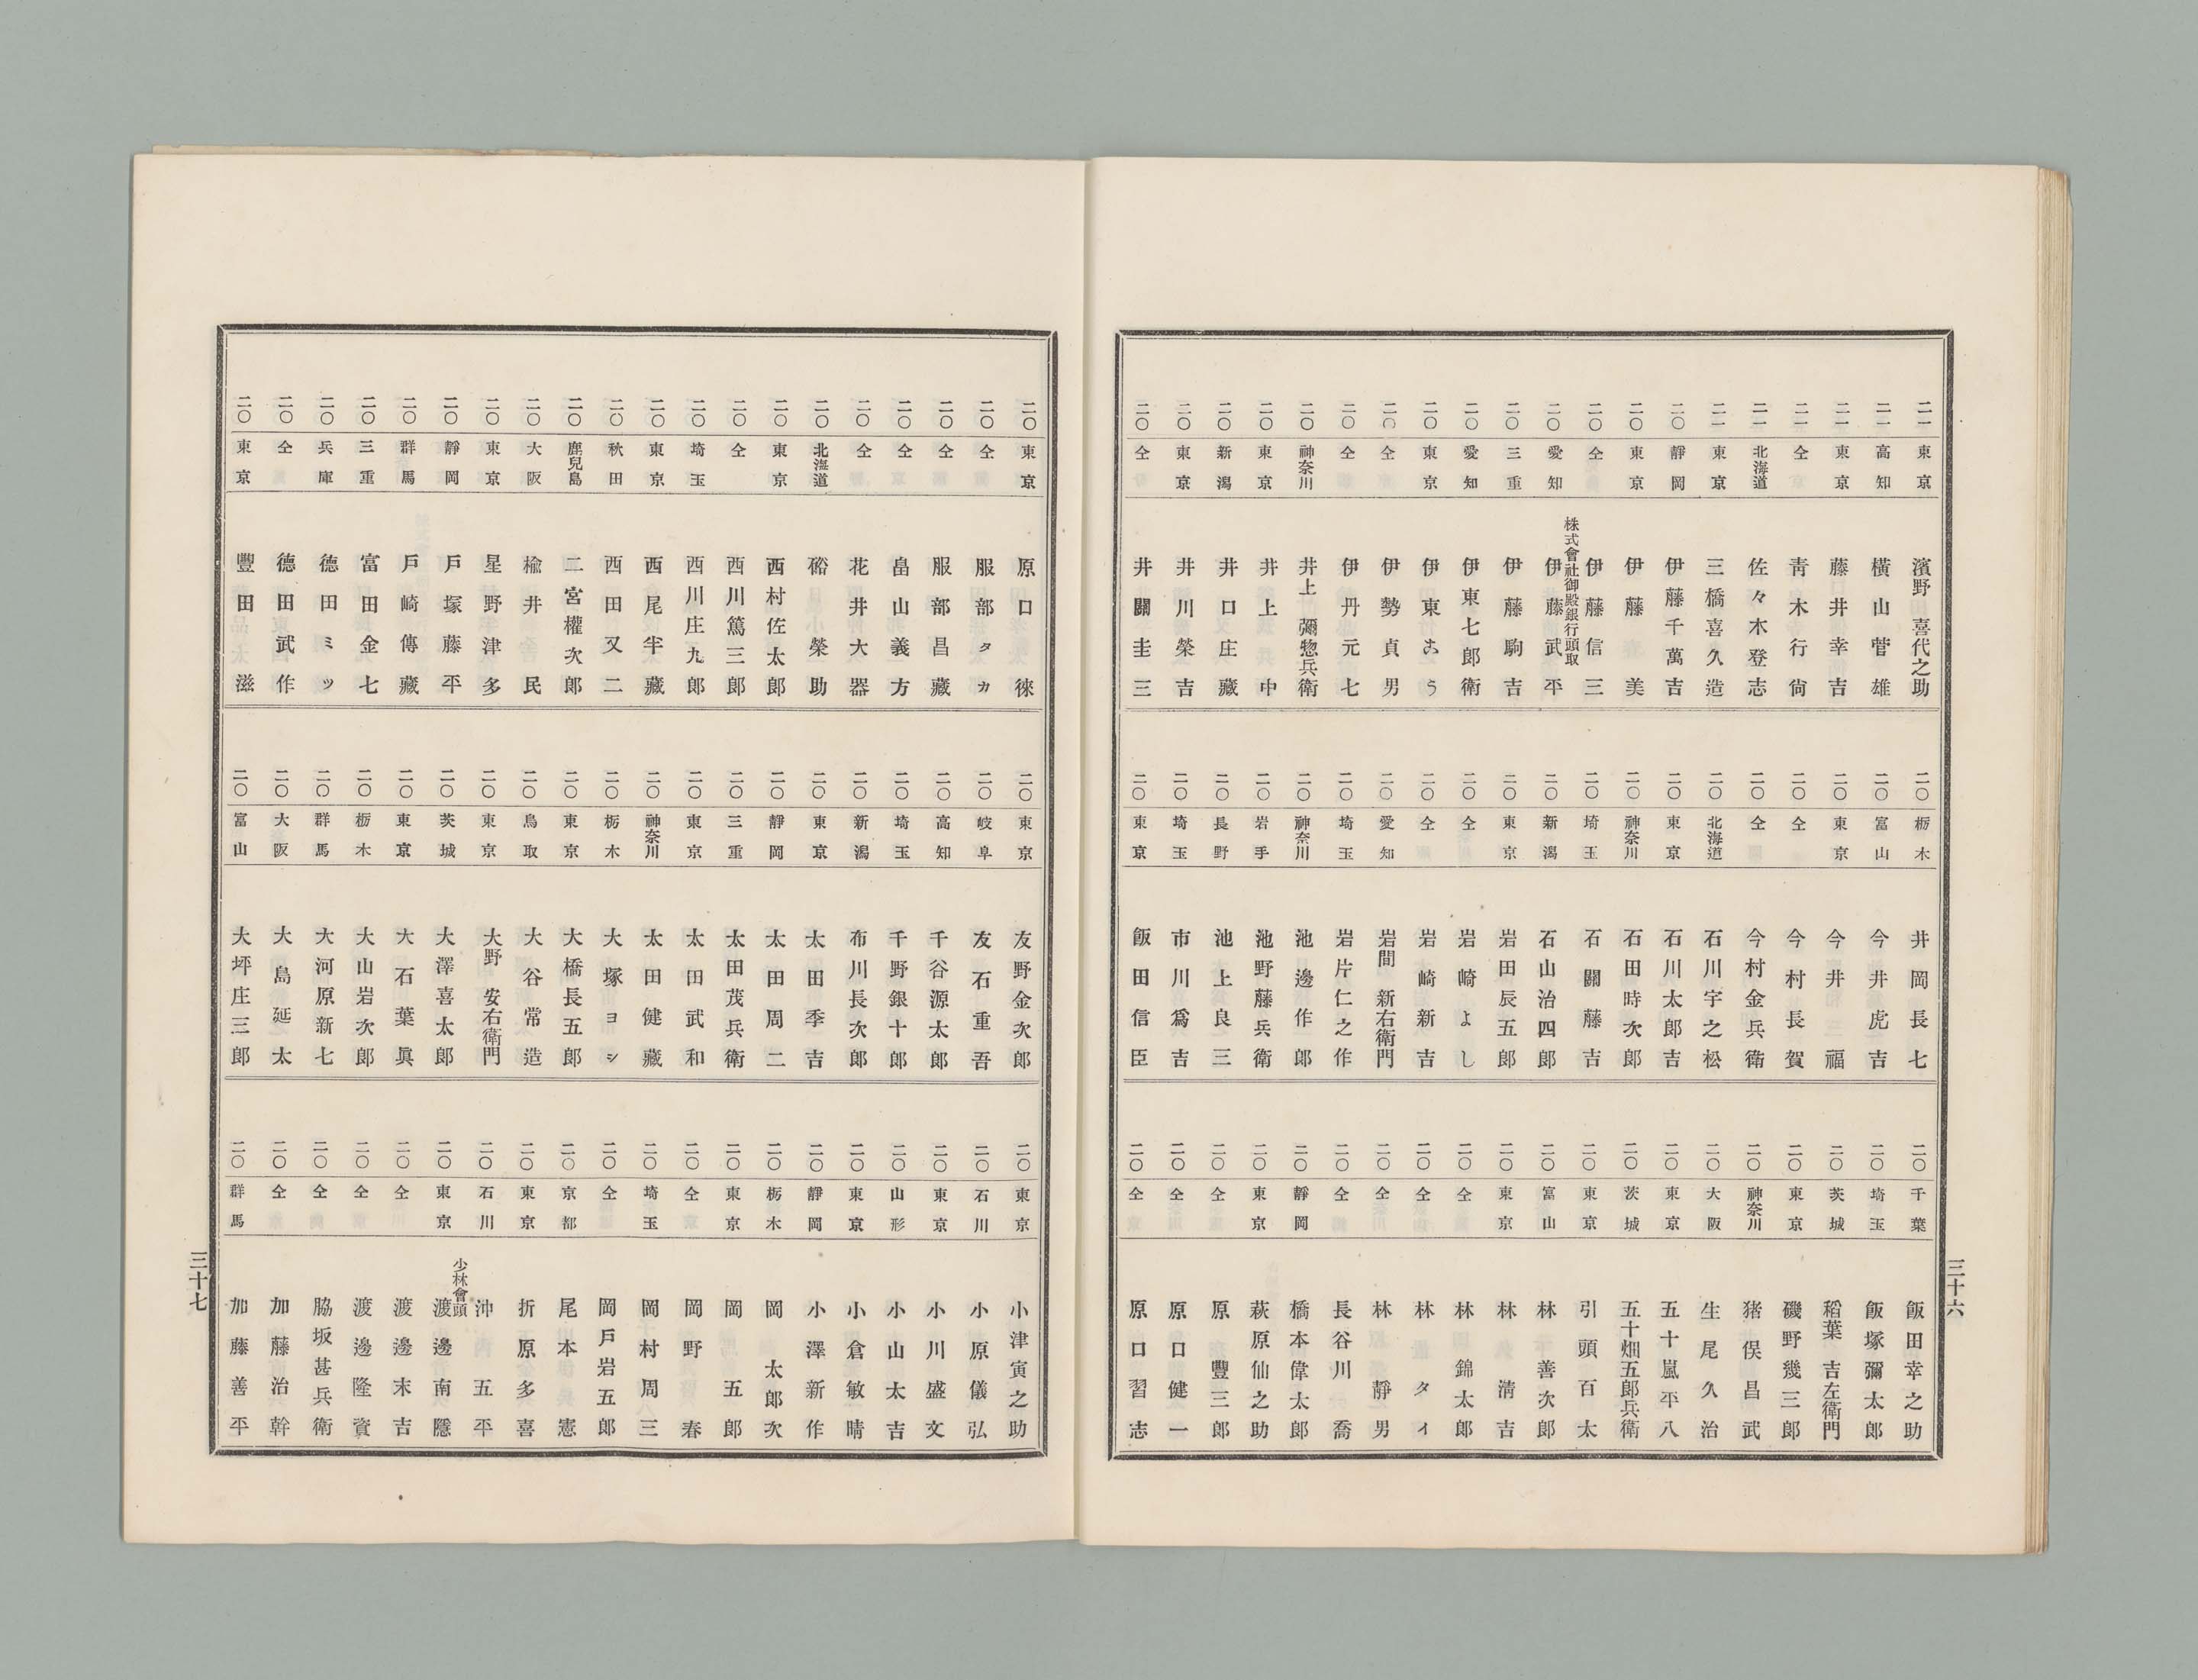 二一 東京 濱野喜代之助
二一 高知 橫山菅雄
二一 東京 藤井幸吉
二一 仝 靑木行尙
二一 北海道 佐々木登志
二一 東京 三橋喜久造
二〇 靜岡 伊藤千萬吉
二〇 東京 伊藤美
二〇 仝 伊藤信三
二〇 愛知 株式會社御殿銀行頭取 伊藤武平
二〇 三重 伊藤駒吉
二〇 愛知 伊東七郎衛
二〇 東京 伊東 う
二〇 仝 伊勢貞男
二〇 仝 伊丹元七
二〇 神奈川 井上彌惣兵衛
二〇 東京 井上中
二〇 新潟 井口庄藏
二〇 東京 井川榮吉
二〇 仝 井關圭三
二〇 栃木 井岡長七
二〇 富山 今井虎吉
二〇 東京 今井福
二〇 仝 今村長賀
二〇 仝 今村金兵衛
二〇 北海道 石川宇之松
二〇 東京 石川太郎吉
二〇 神奈川 石田時次郎
二〇 埼玉 石關藤吉
二〇 新潟 石山治四郎
二〇 東京 岩田辰五郎
二〇 仝 岩崎よし
二〇 仝 岩崎新吉
二〇 愛知 岩間新右衛門
二〇 埼玉 岩片仁之作
二〇 神奈川 池邊作郎
二〇 岩手 池野藤兵衛
二〇 長野 池上良三
二〇 埼玉 市川爲吉
二〇 東京 飯田信臣
二〇 千葉 飯田幸之助
二〇 埼玉 飯塚彌太郎
二〇 茨城 稻葉吉左衛門
二〇 東京 磯野幾三郎
二〇 神奈川 猪俣昌武
二〇 大阪 生尾久治
二〇 東京 五十嵐平八
二〇 茨城 五十畑五郎兵衛
二〇 東京 引頭百太
二〇 富山 林善次郎
二〇 東京 林淸吉
二〇 仝 林錦太郎
二〇 仝 林タイ
二〇 仝 林靜男
二〇 仝 長谷川喬
二〇 靜岡 橋本偉太郎
二〇 東京 萩原仙之助
二〇 仝 原豐三郎
二〇 仝 原口健一
二〇 仝 原口習志
三十六
二〇 東京 原口徠
二〇 仝 服部タカ
二〇 仝 服部昌藏
二〇 仝 畠山義方
二〇 仝 花井大器
二〇 北海道 硲榮助
二〇 東京 西村佐太郎
二〇 仝 西川篤三郎
二〇 埼玉 西川庄九郎
二〇 東京 西尾半藏
二〇 秋田 西田又二
二〇 鹿兒島 二宮權次郎
二〇 大阪 楡井民
二〇 東京 星野津多
二〇 靜岡 戶塚藤平
二〇 群馬 戶崎傳藏
二〇 三重 富田金七
二〇 兵庫 德田ミツ
二〇 仝 德田武作
二〇 東京 豐田滋
二〇 東京 友野金次郎
二〇 岐阜 友石重吾
二〇 高知 千谷源太郎
二〇 埼玉 千野銀十郎
二〇 新潟 布川長次郎
二〇 東京 太田季吉
二〇 靜岡 太田周二
二〇 三重 太田茂兵衛
二〇 東京 太田武和
二〇 神奈川 太田健藏
二〇 栃木 大塚ヨシ
二〇 東京 大橋長五郎
二〇 鳥取 大谷常造
二〇 東京 大野安右衛門
二〇 茨城 大澤喜太郎
二〇 東京 大石葉眞
二〇 栃木 大山岩次郎
二〇 群馬 大河原新七
二〇 大阪 大島延太
二〇 富山 大坪庄三郎
二〇 東京 小津寅之助
二〇 石川 小原儀弘
二〇 東京 小川盛文
二〇 山形 小山太吉
二〇 東京 小倉敏晴
二〇 靜岡 小澤新作
二〇 栃木 岡太郎次
二〇 東京 岡五郎
二〇 仝 岡野春
二〇 埼玉 岡村周三
二〇 仝 岡戶岩五郎
二〇 京都 尾本憲
二〇 東京 折原多喜
二〇 石川 沖五平
二〇 東京 少林會頭 渡邊南隱
二〇 仝 渡邊末吉
二〇 仝 渡邊隆資
二〇 仝 脇坂甚兵衛
二〇 仝 加藤治幹
二〇 群馬 加藤善平
三十七